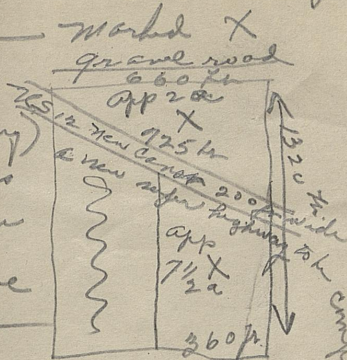 Marked X
gravel road
660 ft
app 2 a
X
925 ft
US 12 New 200 ft wide
a new super highway to be
1320 ft
app
X
7 1/2 a
360 ft.